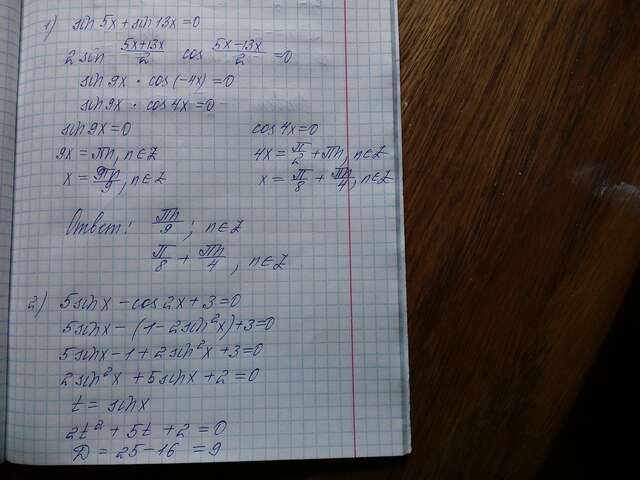 1) sin 5x + sin 13x = 0
2 sin (5x+13x)/2 cos (5x-13x)/2 = 0
sin 9x · cos(-4x) = 0
sin 9x · cos 4x = 0
sin 9x = 0 cos 4x = 0
9x = πn, n∈Z 4x = π/2 + πn, n∈Z
x = πn/9, n∈Z x = π/8 + πn/4, n∈Z
Ответ: πn/9 ; n∈Z
π/8 + πn/4 , n∈Z
2) 5sinx - cos2x + 3 = 0
5sinx - (1 - 2sin²x) + 3 = 0
5sinx - 1 + 2sin²x + 3 = 0
2sin²x + 5sinx + 2 = 0
t = sinx
2t² + 5t + 2 = 0
D = 25 - 16 = 9